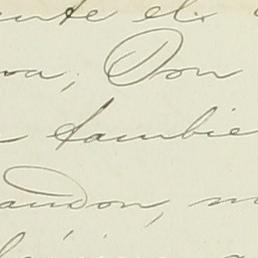 ente el
va; Don
tambie
audon, m